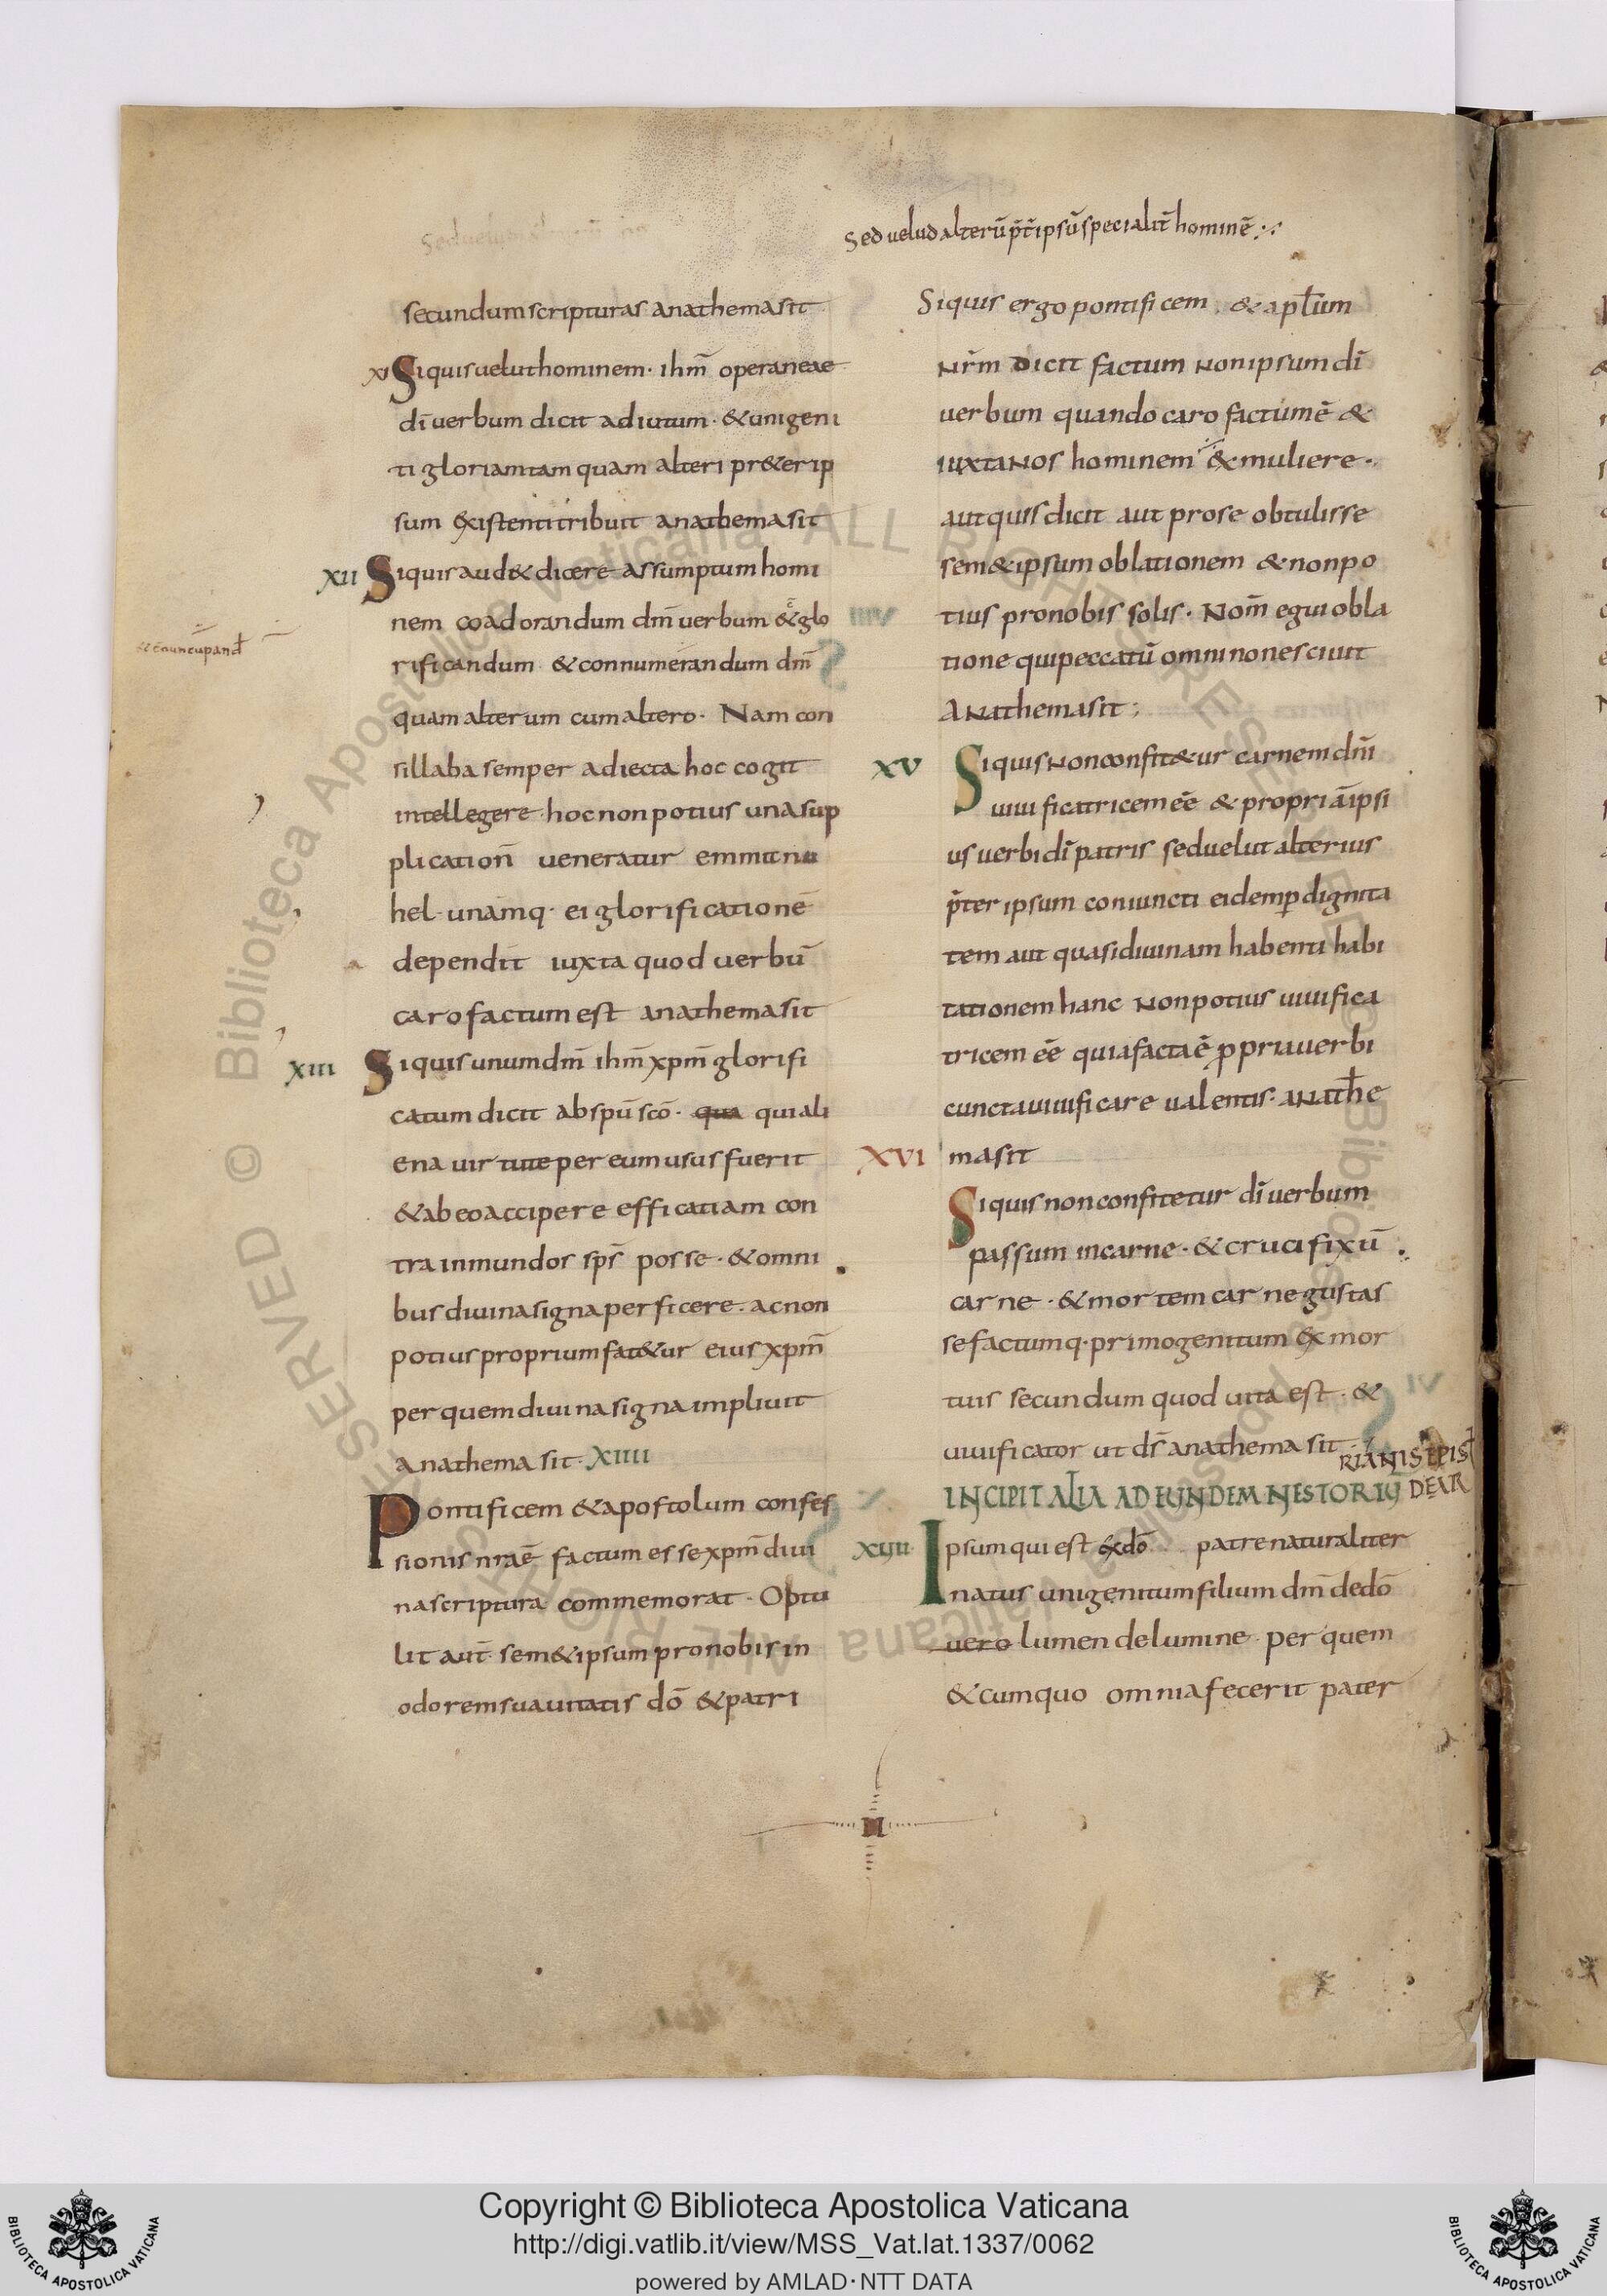 sed uelud alterū p̄t̄ ipsū specialit̄ hominē
secundum scripturas anathema sit
XI Si quis uelut hominem · ihm̄ operaneae
dī uerbum dicit adiutum · & unigeni
ti gloriam tamquam alteri pr&er ip
sum existenti tribuit anathema sit
XII Si quis aud& dicere assumptum homi
nem coadorandum dm̄ uerbum & glo
rificandum & connumerandum dm̄
& cū nuncupand
quam alterum cum altero · Nam con
sillaba semper adiecta hoc cogit
intellegere · hoc non potius una sup
plication̄ ueneratur emmanu
hel · unamq · ei glorificationē
dependit iuxta quod uerbū
caro factum est anathema sit
XIII Si quis unum dm̄ ihm̄ xpm̄ glorifi
catum dicit ab spū scō · qua qui ali
ena uirtute per eum usus fuerit
& ab eo accipere efficatiam con
tra inmundos sps̄ posse · & omni
bus diuina signa perficere · ac non
potius proprium fat&ur eius xpm̄
per quem diuina signa impliuit
anathema sit · XIIII
Pontificem & apostolum confes
sionis nraē factum esse xpm̄ diui
na scriptura commemorat · Optu
lit aut̄ sem&ipsum pro nobis in
odorem suauitatis dō & patri
Si quis ergo pontificem · & apłum
nr̄m dicit factum non ipsum dī
uerbum quando caro factum ē &
iuxta nos hominem & muliere ·
aut quis dicit aut pro se obtulisse
sem&ipsum oblationem & non po
tius pro nobis solis · Nom̄ egui obla
tione qui peccatū omnino nesciuit
Anathema sit ;
XV Si quis non confit&ur carnem dnī
uiuificatricem eē & propriā ipsi
us uerbi dī patris sed uelut alterius
p̄ter ipsum coniuncti eidem p dignita
tem aut quasi diuinam habenti habi
tationem hanc Non potius uiuifica
tricem eē quia facta ē propria uerbi
cuncta uiuificare ualentis · anathe
XVI masit
Si quis non confitetur dī uerbum
passum in carne · & crucifixū
carne · & mortem carne gustas
se factumq · primogenitum ex mor
tuis secundum quod uita est · &
uiuificator ut ds̄ anathema sit
INCIPIT ALIA AD EUNDEM NESTORIU DE AR
RIANIS EPIST
XVII Ipsum qui est ex dō patre naturaliter
natus unigenitum filium dm̄ de dō
uero lumen de lumine · per quem
& cum quo omnia fecerit pater
Biblioteca Apostolica Vaticana ALL RIGHTS RESERVED ©
Copyright © Biblioteca Apostolica Vaticana
http://digi.vatlib.it/view/MSS_Vat.lat.1337/0062
powered by AMLAD·NTT DATA
BIBLIOTECA APOSTOLICA VATICANA
BIBLIOTECA APOSTOLICA VATICANA